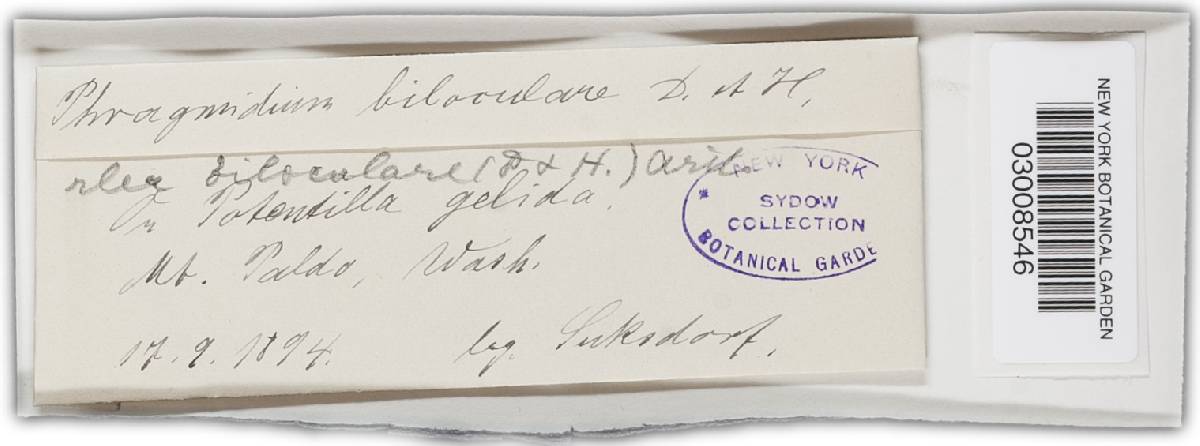 Phragmidium biloculare D. et H.
biloculare (D & H.) Arth.
On Potentilla gelida.
Mt. Paldo, Wash.
17. 9. 1894. leg. Suksdorf.
NEW YORK
* SYDOW
COLLECTION
BOTANICAL GARDE
NEW YORK BOTANICAL GARDEN
03008546